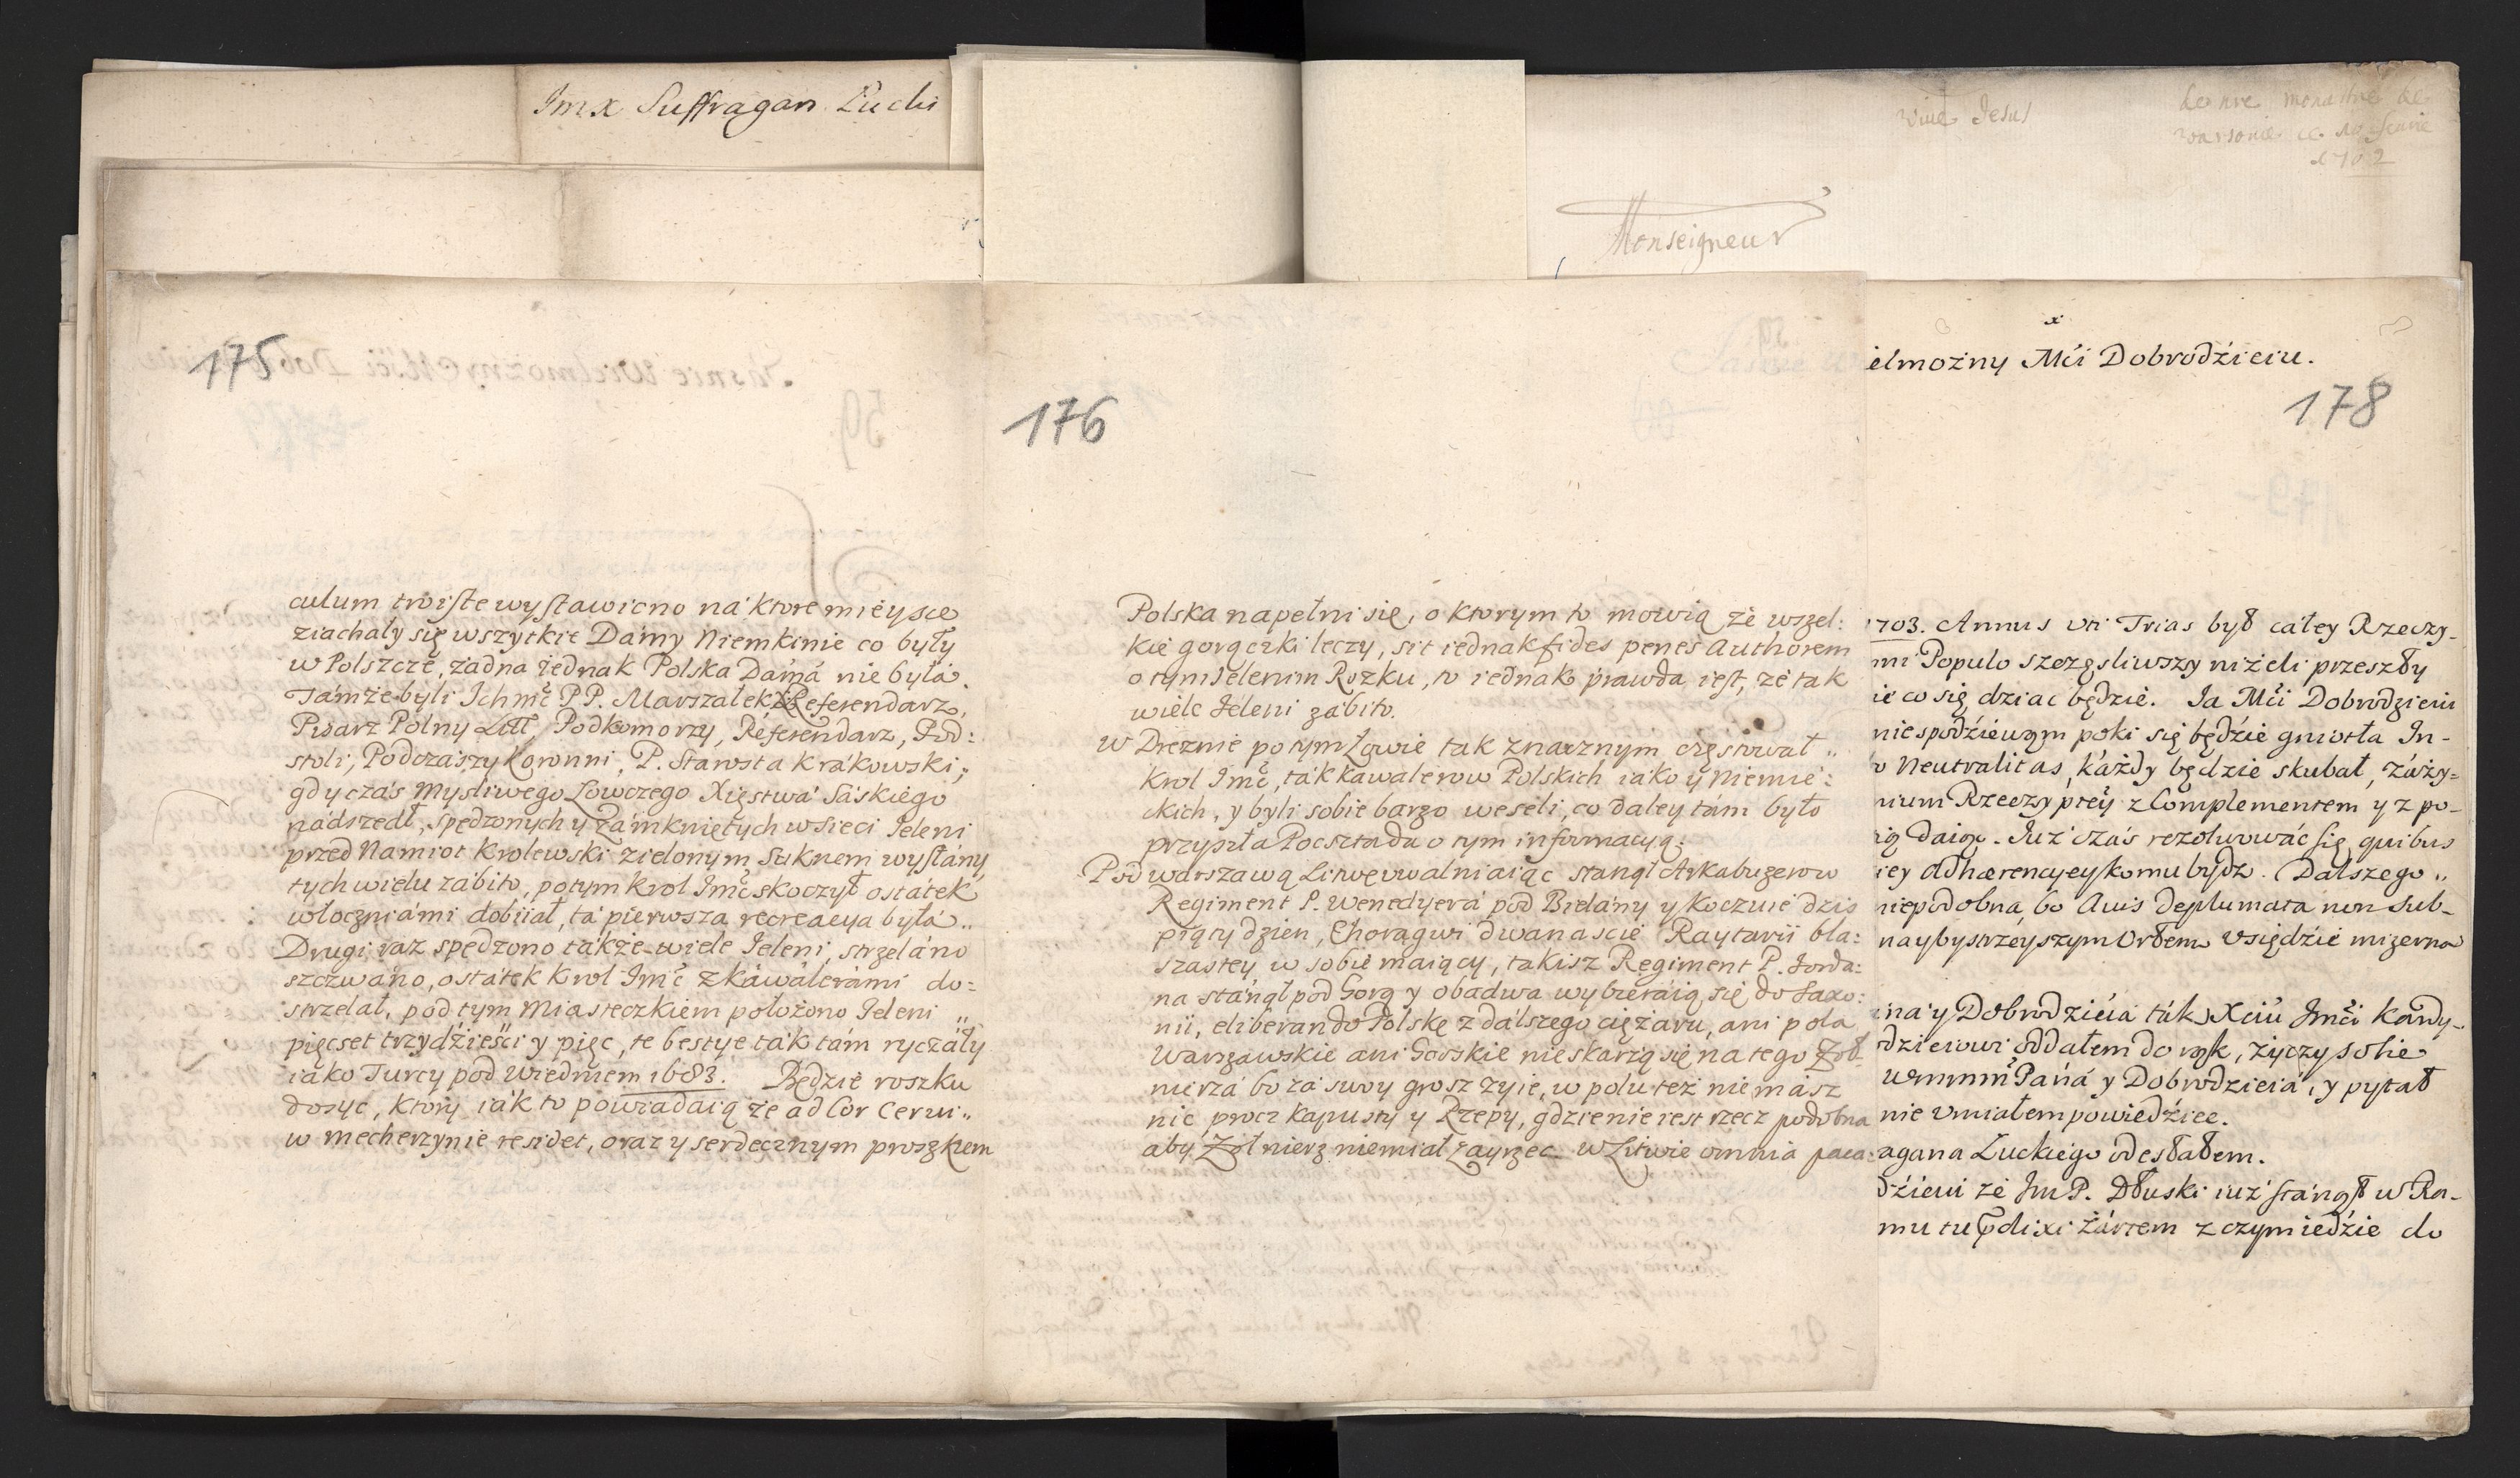 Imx Suffragan Łucki
vive Jesus
Monseigneur
175
culum troiste wystawiono na ktore mieysce
ziachały się wszytkie Damy Niemkinie co były
w Polszcze, żadna iednak Polska Dama nie była.
Tamże byli Ichmc PP. Marszałek Referendarz,
Pisarz Polny Litt, Podkomorzy, Referendarz, Pod:
stoli, Podczaszy Koronni, P. Starosta Krakowski,
gdy czas Mysliwego Łowczego Xięstwa Saskiego
nadszedł, spędzonych y zamkniętych w sieci Jeleni
przed Namiot Krolewski zielonym Suknem wysłany
tych wielu zabito, potym Krol Jmc skoczył ostatek
włoczniami dobiiał, ta pierwsza recreacya była „
Drugi raz spędzono także wiele Jeleni, strzelano
szczwano, ostatek Krol Jmc z kawalerami do=
strzelał, pod tym Miasteczkiem położono Jeleni „
pięcset trzydzieści y pięc, te bestye tak tam ryczały
iako Turcy pod Wiedniem 1683. Będzie roszku
dosyc, ktory iak to powiadaią że ad Cor Cervi „
w mecherzynie residet, oraz y serdecznym proszkiem
176
Polska napełni się, o ktorym to mowią że wszel:
kie gorączki leczy, sit iednak fides penes Authorem
o tym Jelenim Rożku, to iednak prawda iest, że tak
wiele Jeleni zabito.
W Dreznie po tym Łowie tak znacznym częstował „
Krol Jmc, tak kawalerow Polskich iako y Niemie:
ckich, y byli sobie barzo weseli, co daley tam było
przyszła Poczta da o tym informacyą.
Pod Warszawą Litwę uwalniaiąc stanął Arkabuzerow
Regiment P. Wenedyera pod Bielany y koczuie dzis
piąty dzien, Choragwi dwanascie Raytarii bla:
szastey w sobie maiący, takisz Regiment P. Jorda:
na stanął pod Gorą y obadwa wybieraią się do Saxo:
nii, eliberando Polskę z dalszego ciężaru, ani pola
Warszawskie ani Gorskie nie skarzą się na tego Żoł-
nierza bo za swoy grosz żyie, w polu też niemasz
nic procz kapusty y Rzepy, gdzie nie iest rzecz podobna
aby Żołnierz niemiał zayrzec. W Litwie omnia paca:
x
elmożny Mci Dobrodzieiu.
178
1703. Annus uti Trias był całey Rzeczy-
mi Populo szczęsliwszy niżeli przeszły
ie co się dziac będzie. Ja Mci Dobrodzieiu
nie spodziewam poki się będzie gniotła In-
o Neutralitas, każdy będzie skubał, zażsy=
nium Rzeczyptey z Complementem y z po-
ią daią. Już czas rezoluwowac się, quibus
iey Adhærencyey komu bydz. Dalszego „
niepodobna, bo Avis deplumata non sub-
naybystrzeyszym Orłem usiędzie mizerna
na y Dobrodzieia tak Xciu Jmci Kardy-
dzieiowi oddałem do rąk, życzy sobie
Wmmm Pana y Dobrodzieia, y pytał
nie umiałem powiedziec.
agana Luckiego odesłałem.
dzieiu że Jm P. Dłuski iuż stanął w Ra-
mu tu prdixi żartem z czym iedzie do